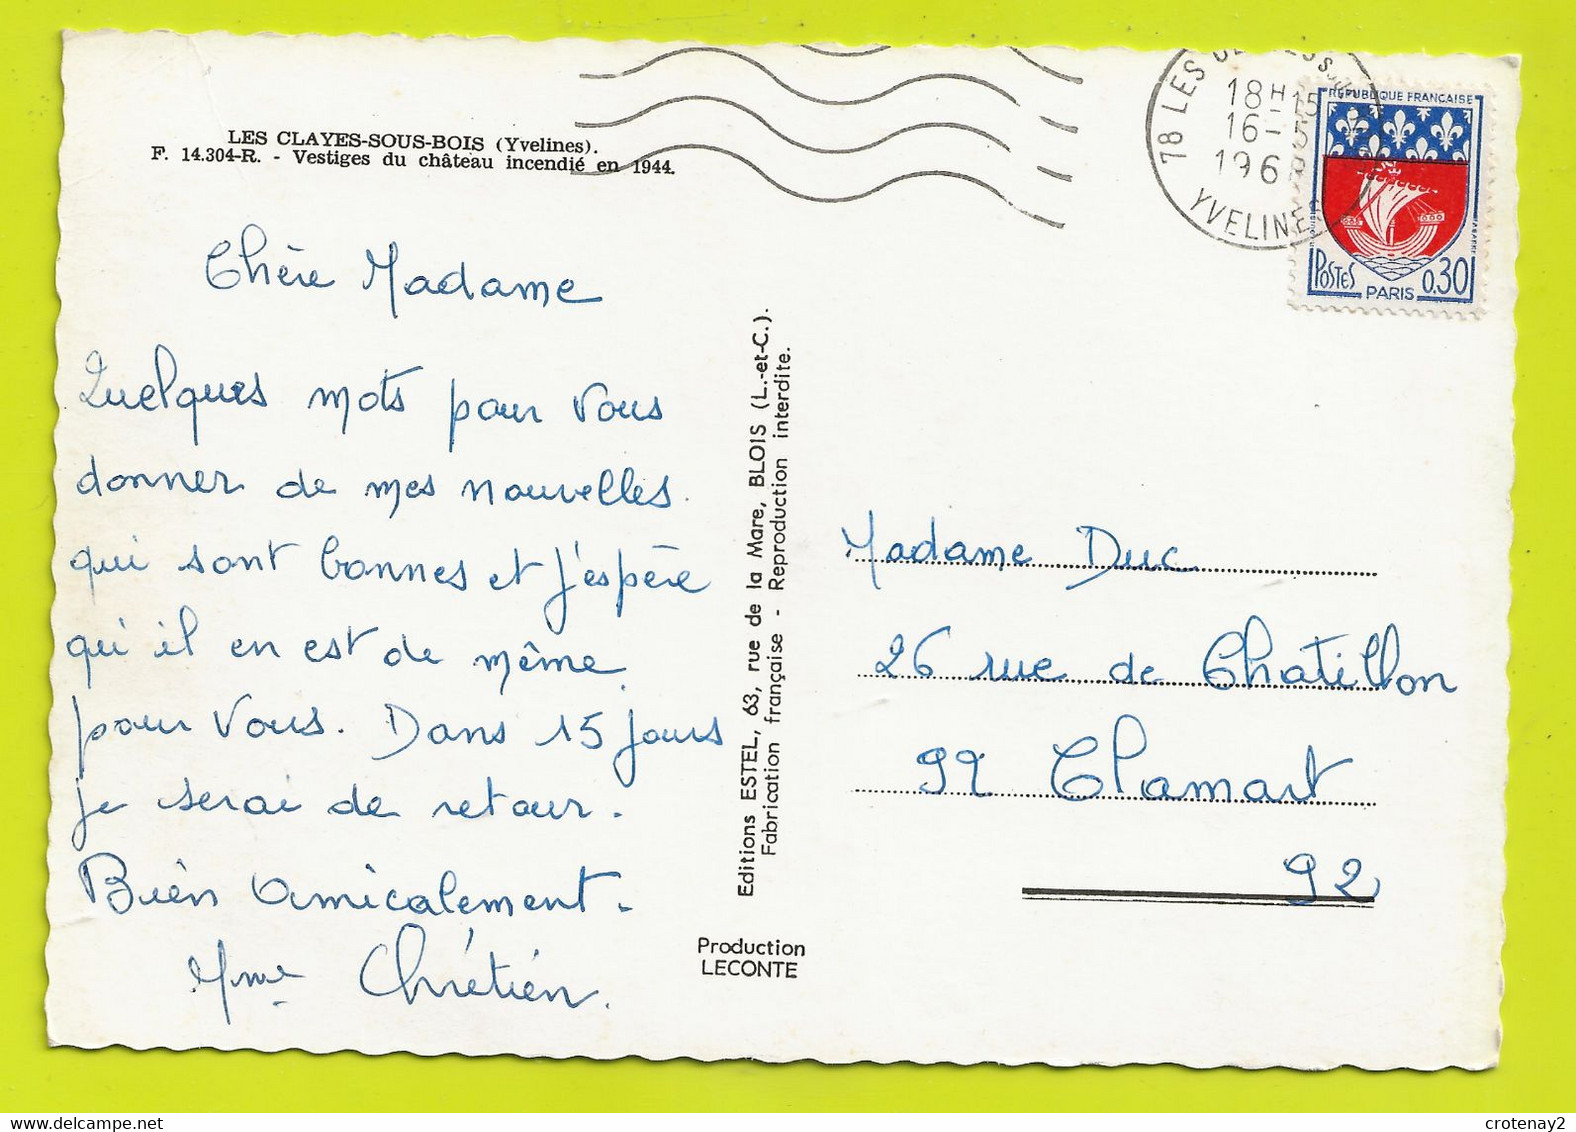 LES CLAYES-SOUS-BOIS (Yvelines).
F. 14.304-R. - Vestiges du château incendié en 1944.
Chère Madame
Quelques mots pour vous
donner de mes nouvelles.
qui sont bonnes et j'espère
qui il en est de même
pour vous. Dans 15 jours
je serai de retour.
Bien Amicalement.
Mme Chrétien.
Editions ESTEL, 63, rue de la Mare, BLOIS (L.-et-C.).
Fabrication française - Reproduction interdite.
Production
LECONTE
78 LES
18H15
16-5
196
YVELINES
REPUBLIQUE FRANÇAISE
POSTES
0,30
PARIS
Madame Duc
26 rue de Chatillon
92 Clamart
92
crotenay2